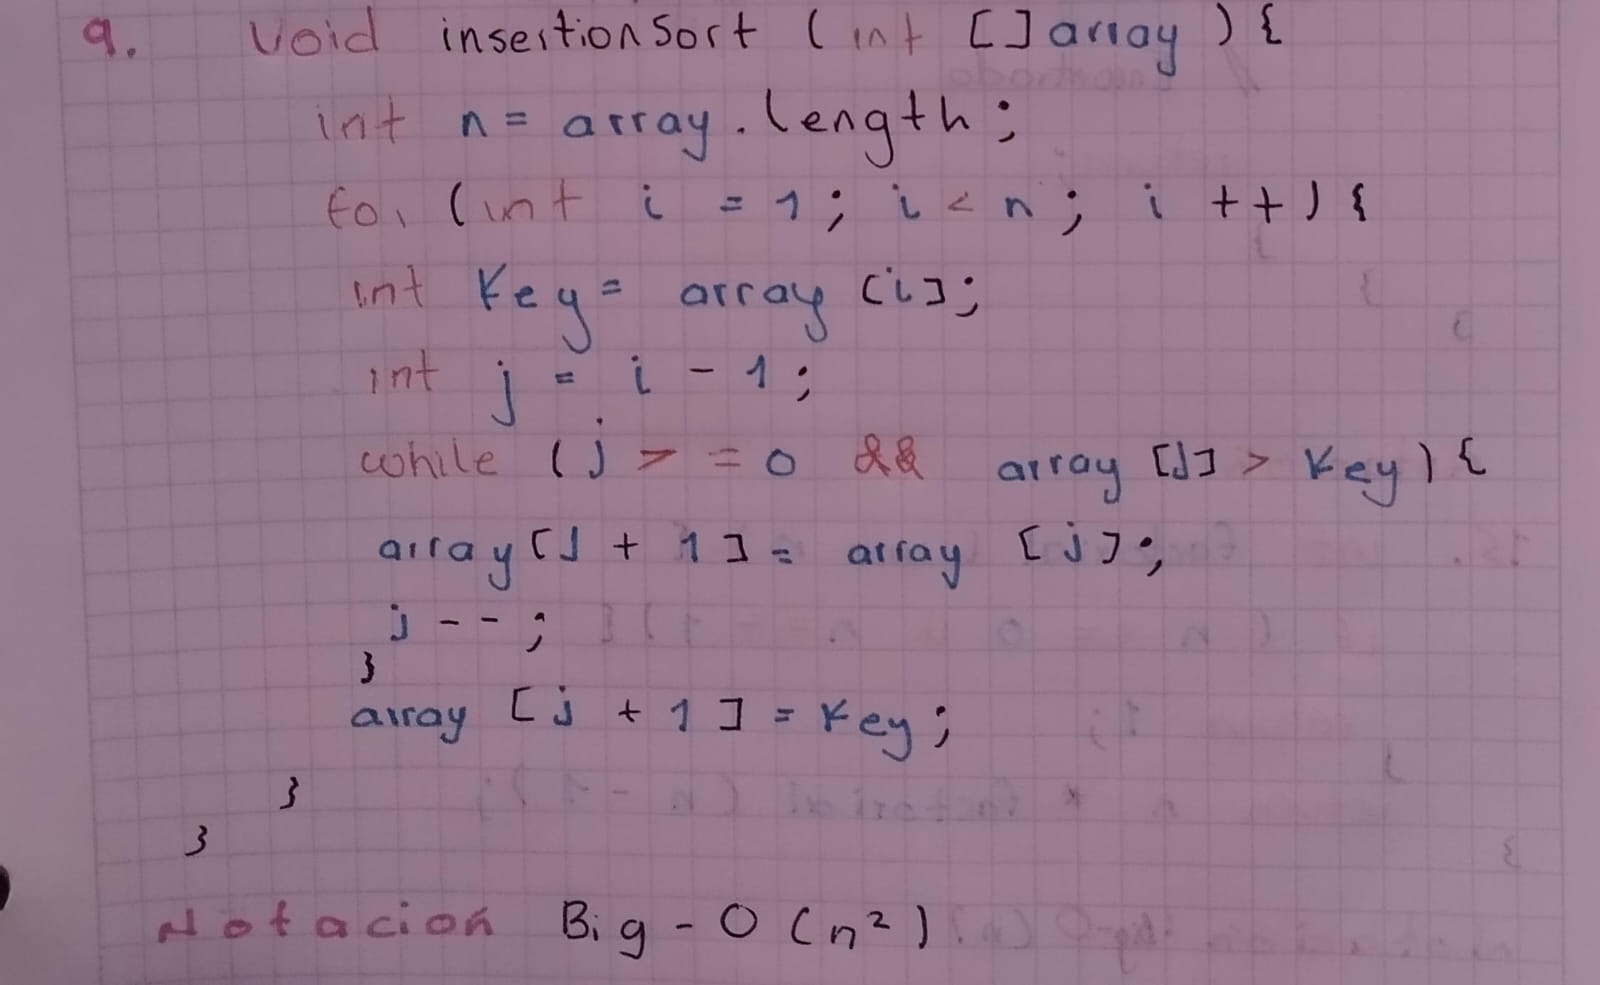 9. void insertionSort (int []array){
int n= array.length;
for (int i = 1; i < n; i ++) {
int Key= array [i];
int j = i - 1;
while (j > = 0 && array [J] > Key) {
array [J + 1] = array [j];
j --;
}
array [j + 1] = Key;
}
}
Notación Big - O (n²)